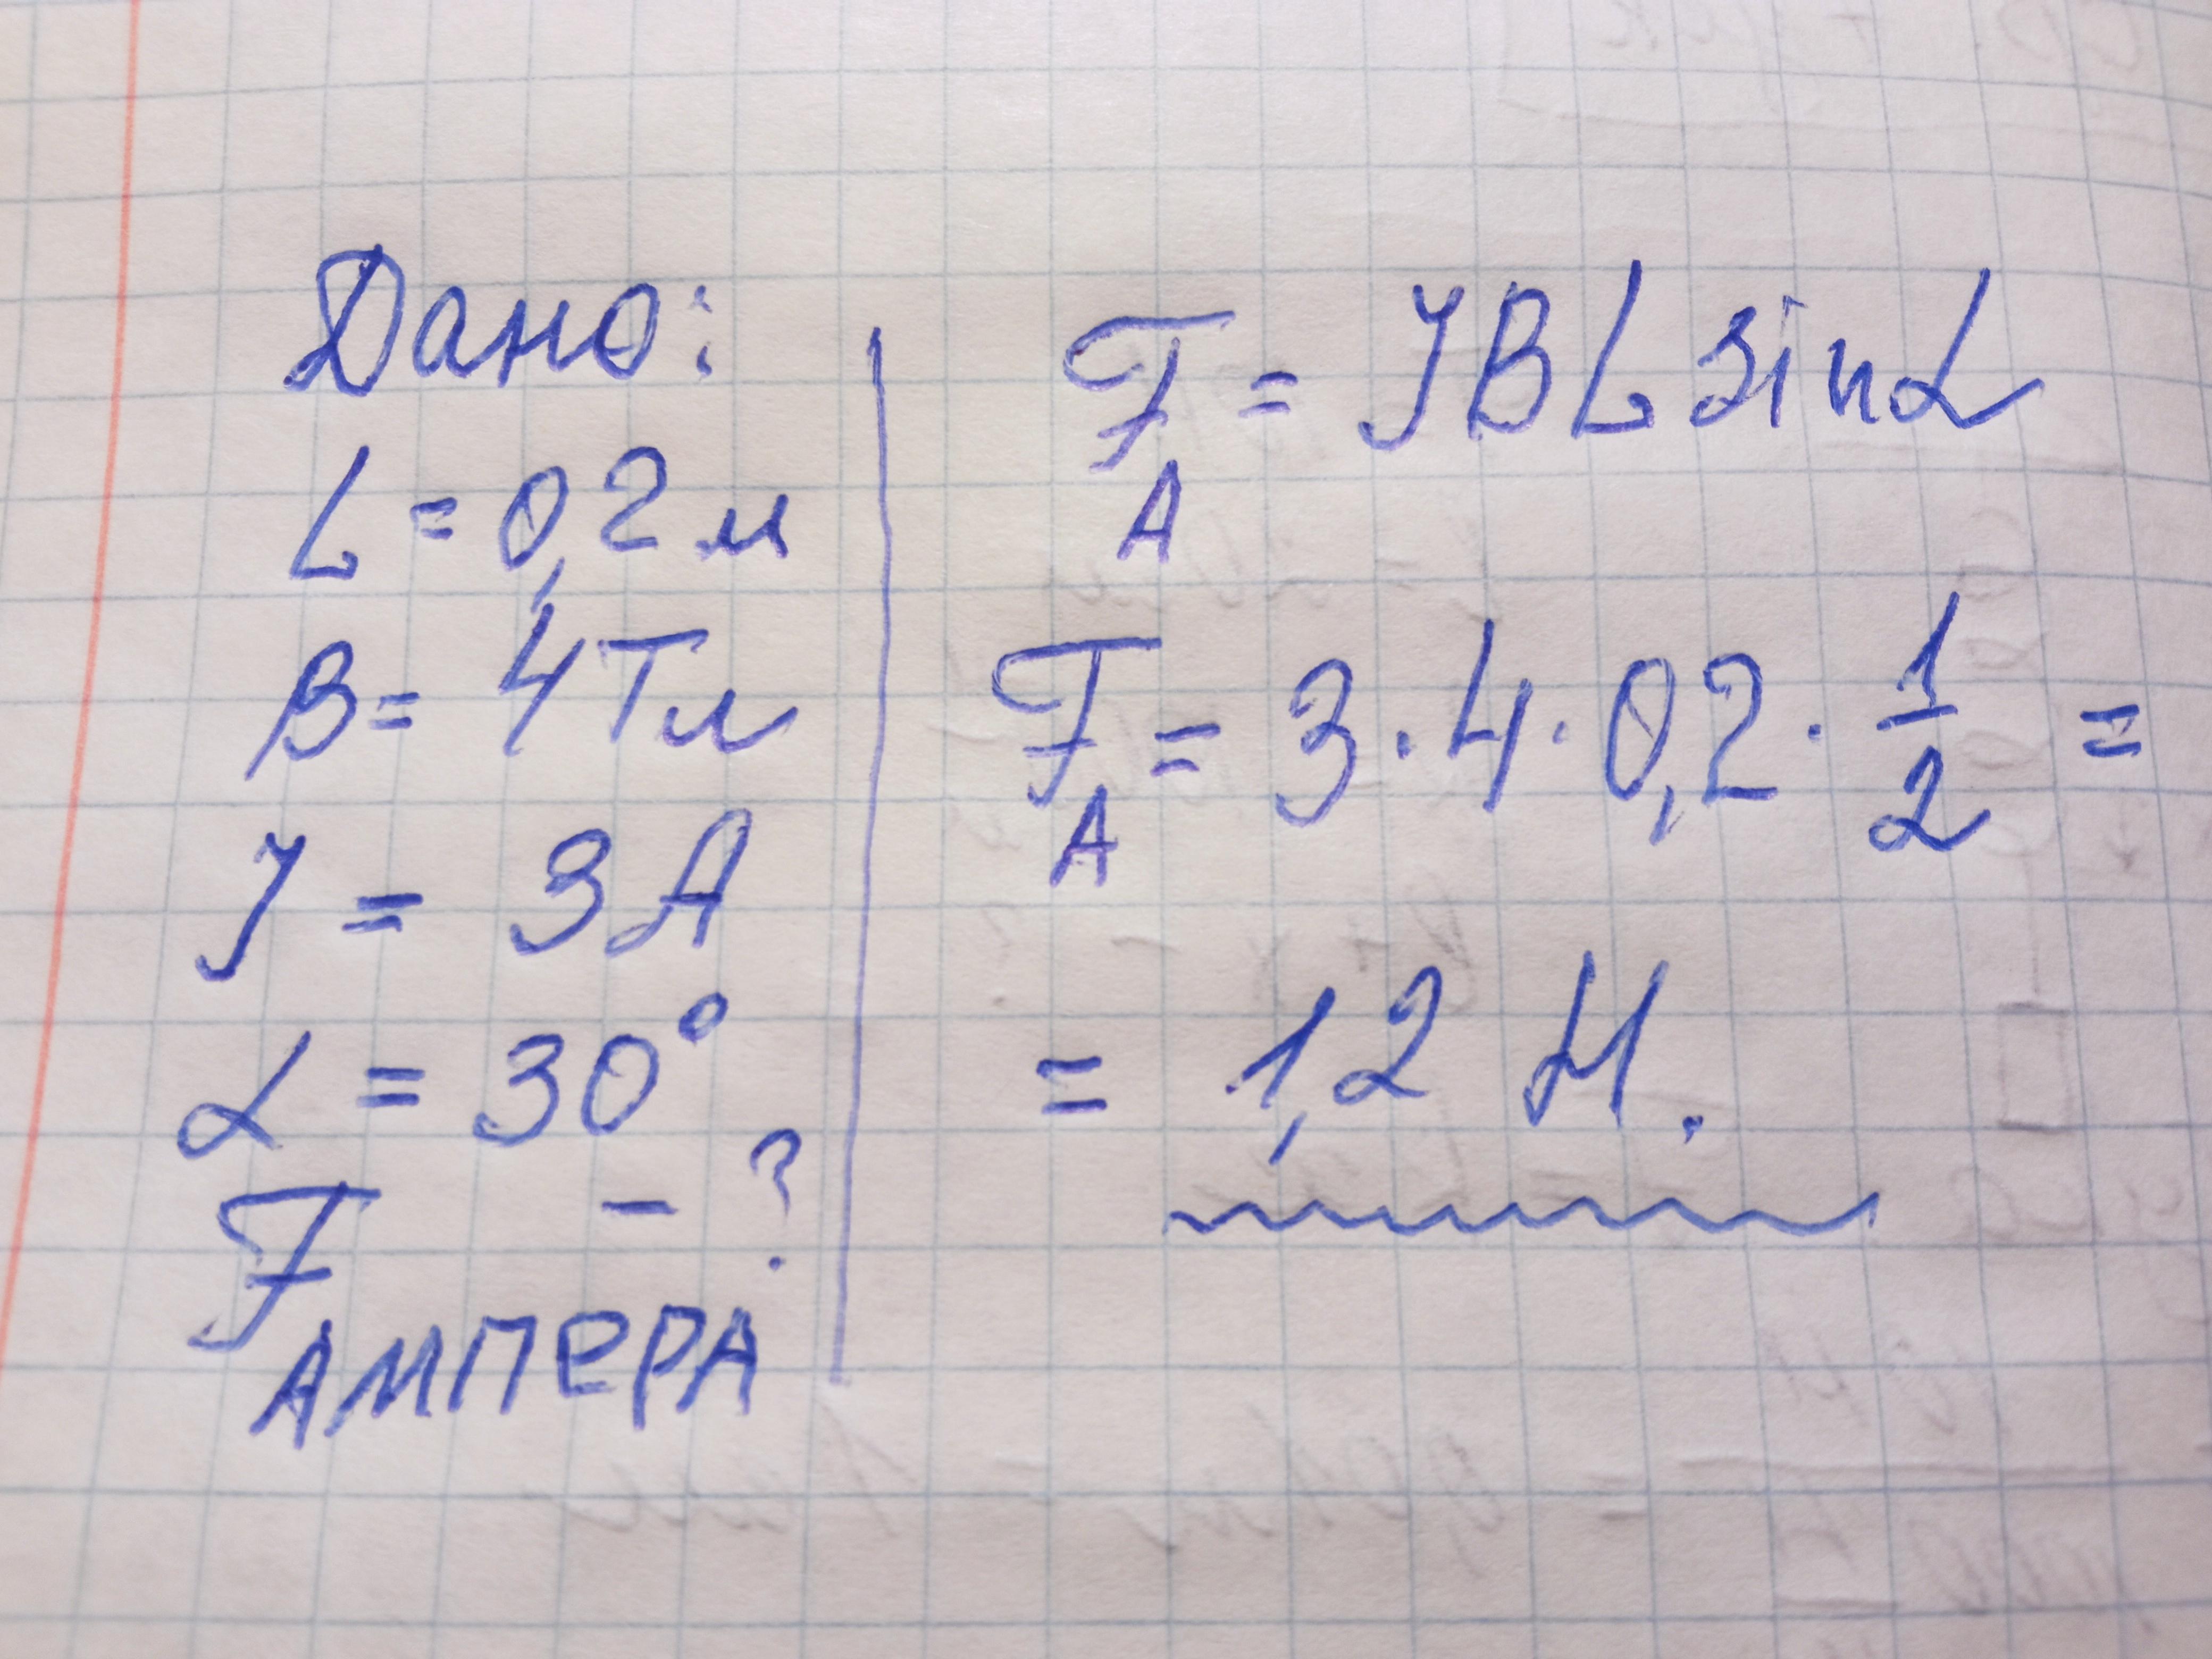 Дано:
L = 0,2 м
B = 4 Тл
J = 3 А
α = 30°
F Ампера - ?
F_A = JBL sin α
F_A = 3 · 4 · 0,2 · 1/2 =
= 1,2 Н.